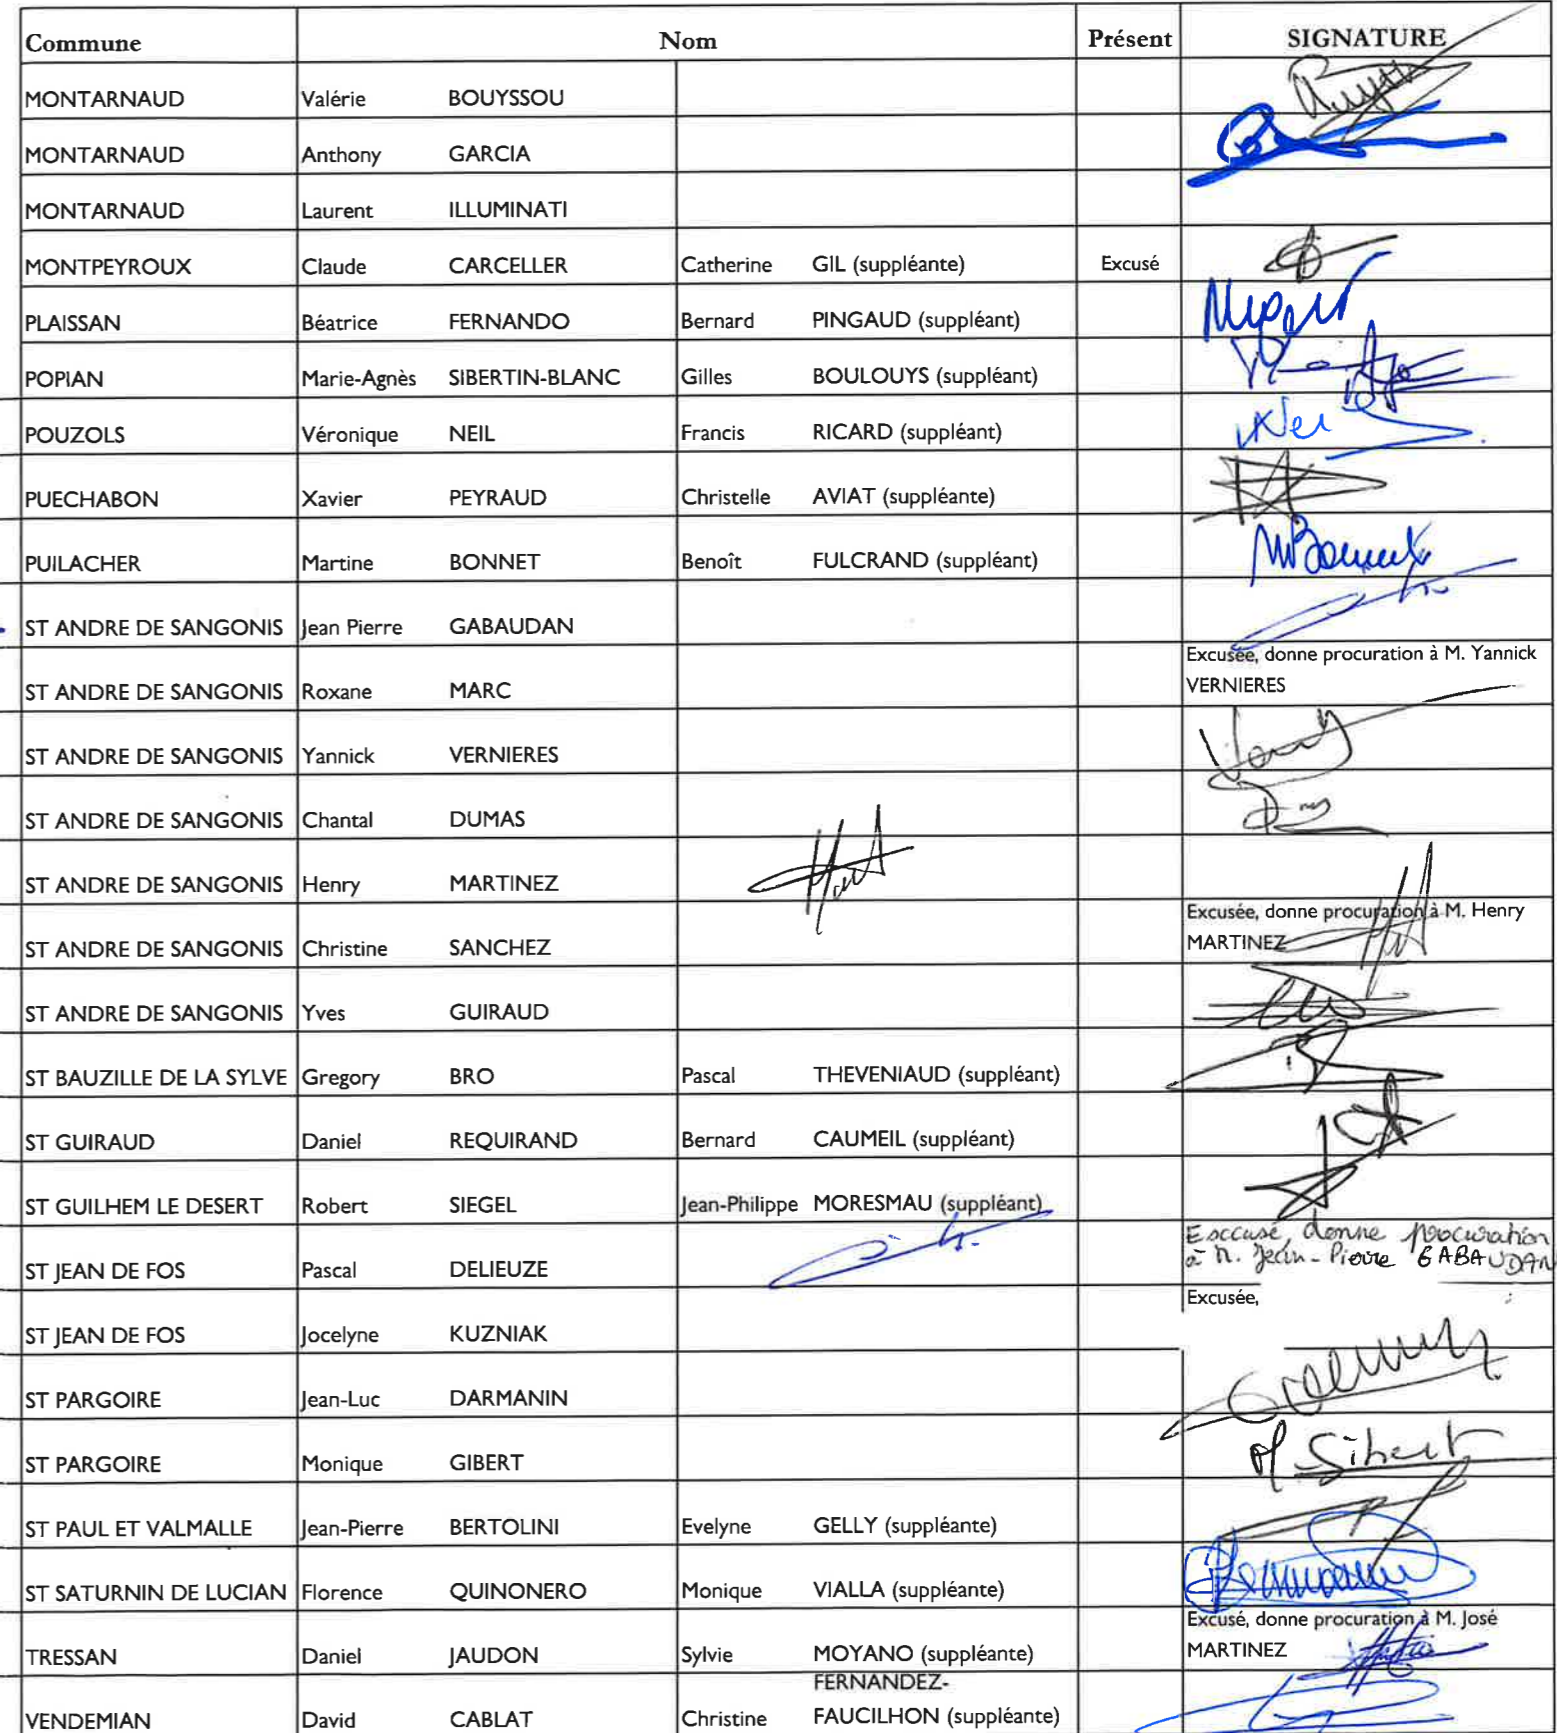 Commune Nom Présent SIGNATURE
MONTARNAUD Valérie BOUYSSOU
MONTARNAUD Anthony GARCIA
MONTARNAUD Laurent ILLUMINATI
MONTPEYROUX Claude CARCELLER Catherine GIL (suppléante) Excusé
PLAISSAN Béatrice FERNANDO Bernard PINGAUD (suppléant)
POPIAN Marie-Agnès SIBERTIN-BLANC Gilles BOULOUYS (suppléant)
POUZOLS Véronique NEIL Francis RICARD (suppléant)
PUECHABON Xavier PEYRAUD Christelle AVIAT (suppléante)
PUILACHER Martine BONNET Benoît FULCRAND (suppléant)
ST ANDRE DE SANGONIS Jean Pierre GABAUDAN
Excusée, donne procuration à M. Yannick
ST ANDRE DE SANGONIS Roxane MARC VERNIERES
ST ANDRE DE SANGONIS Yannick VERNIERES
ST ANDRE DE SANGONIS Chantal DUMAS
ST ANDRE DE SANGONIS Henry MARTINEZ
Excusée, donne procuration à M. Henry
ST ANDRE DE SANGONIS Christine SANCHEZ MARTINEZ
ST ANDRE DE SANGONIS Yves GUIRAUD
ST BAUZILLE DE LA SYLVE Gregory BRO Pascal THEVENIAUD (suppléant)
ST GUIRAUD Daniel REQUIRAND Bernard CAUMEIL (suppléant)
ST GUILHEM LE DESERT Robert SIEGEL Jean-Philippe MORESMAU (suppléant)
Exccusé, donne procuration
à M. Jean-Pierre GABAUDAN
ST JEAN DE FOS Pascal DELIEUZE
Excusée,
ST JEAN DE FOS Jocelyne KUZNIAK
ST PARGOIRE Jean-Luc DARMANIN
ST PARGOIRE Monique GIBERT
ST PAUL ET VALMALLE Jean-Pierre BERTOLINI Evelyne GELLY (suppléante)
ST SATURNIN DE LUCIAN Florence QUINONERO Monique VIALLA (suppléante)
Excusé, donne procuration à M. José
TRESSAN Daniel JAUDON Sylvie MOYANO (suppléante) MARTINEZ
FERNANDEZ-
VENDEMIAN David CABLAT Christine FAUCILHON (suppléante)